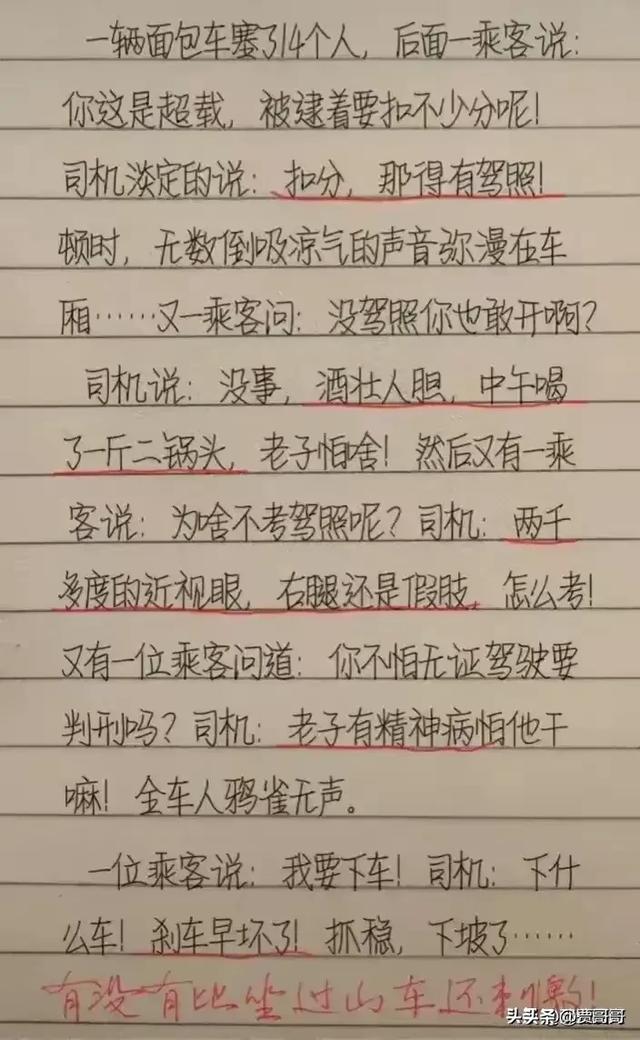 一辆面包车塞了14个人，后面一乘客说：
你这是超载，被逮着要扣不少分呢！
司机淡定的说：扣分，那得有驾照！
顿时，无数倒吸凉气的声音弥漫在车
厢……又一乘客问：没驾照你也敢开啊？
司机说：没事，酒壮人胆，中午喝
了一斤二锅头，老子怕啥！然后又有一乘
客说：为啥不考驾照呢？司机：两千
多度的近视眼，右腿还是假肢，怎么考！
又有一位乘客问道：你不怕无证驾驶要
判刑吗？司机：老子有精神病怕他干
嘛！全车人鸦雀无声。
一位乘客说：我要下车！司机：下什
么车！刹车早坏了！抓稳，下坡了……
有没有比坐过山车还刺激！
头条@贾哥哥